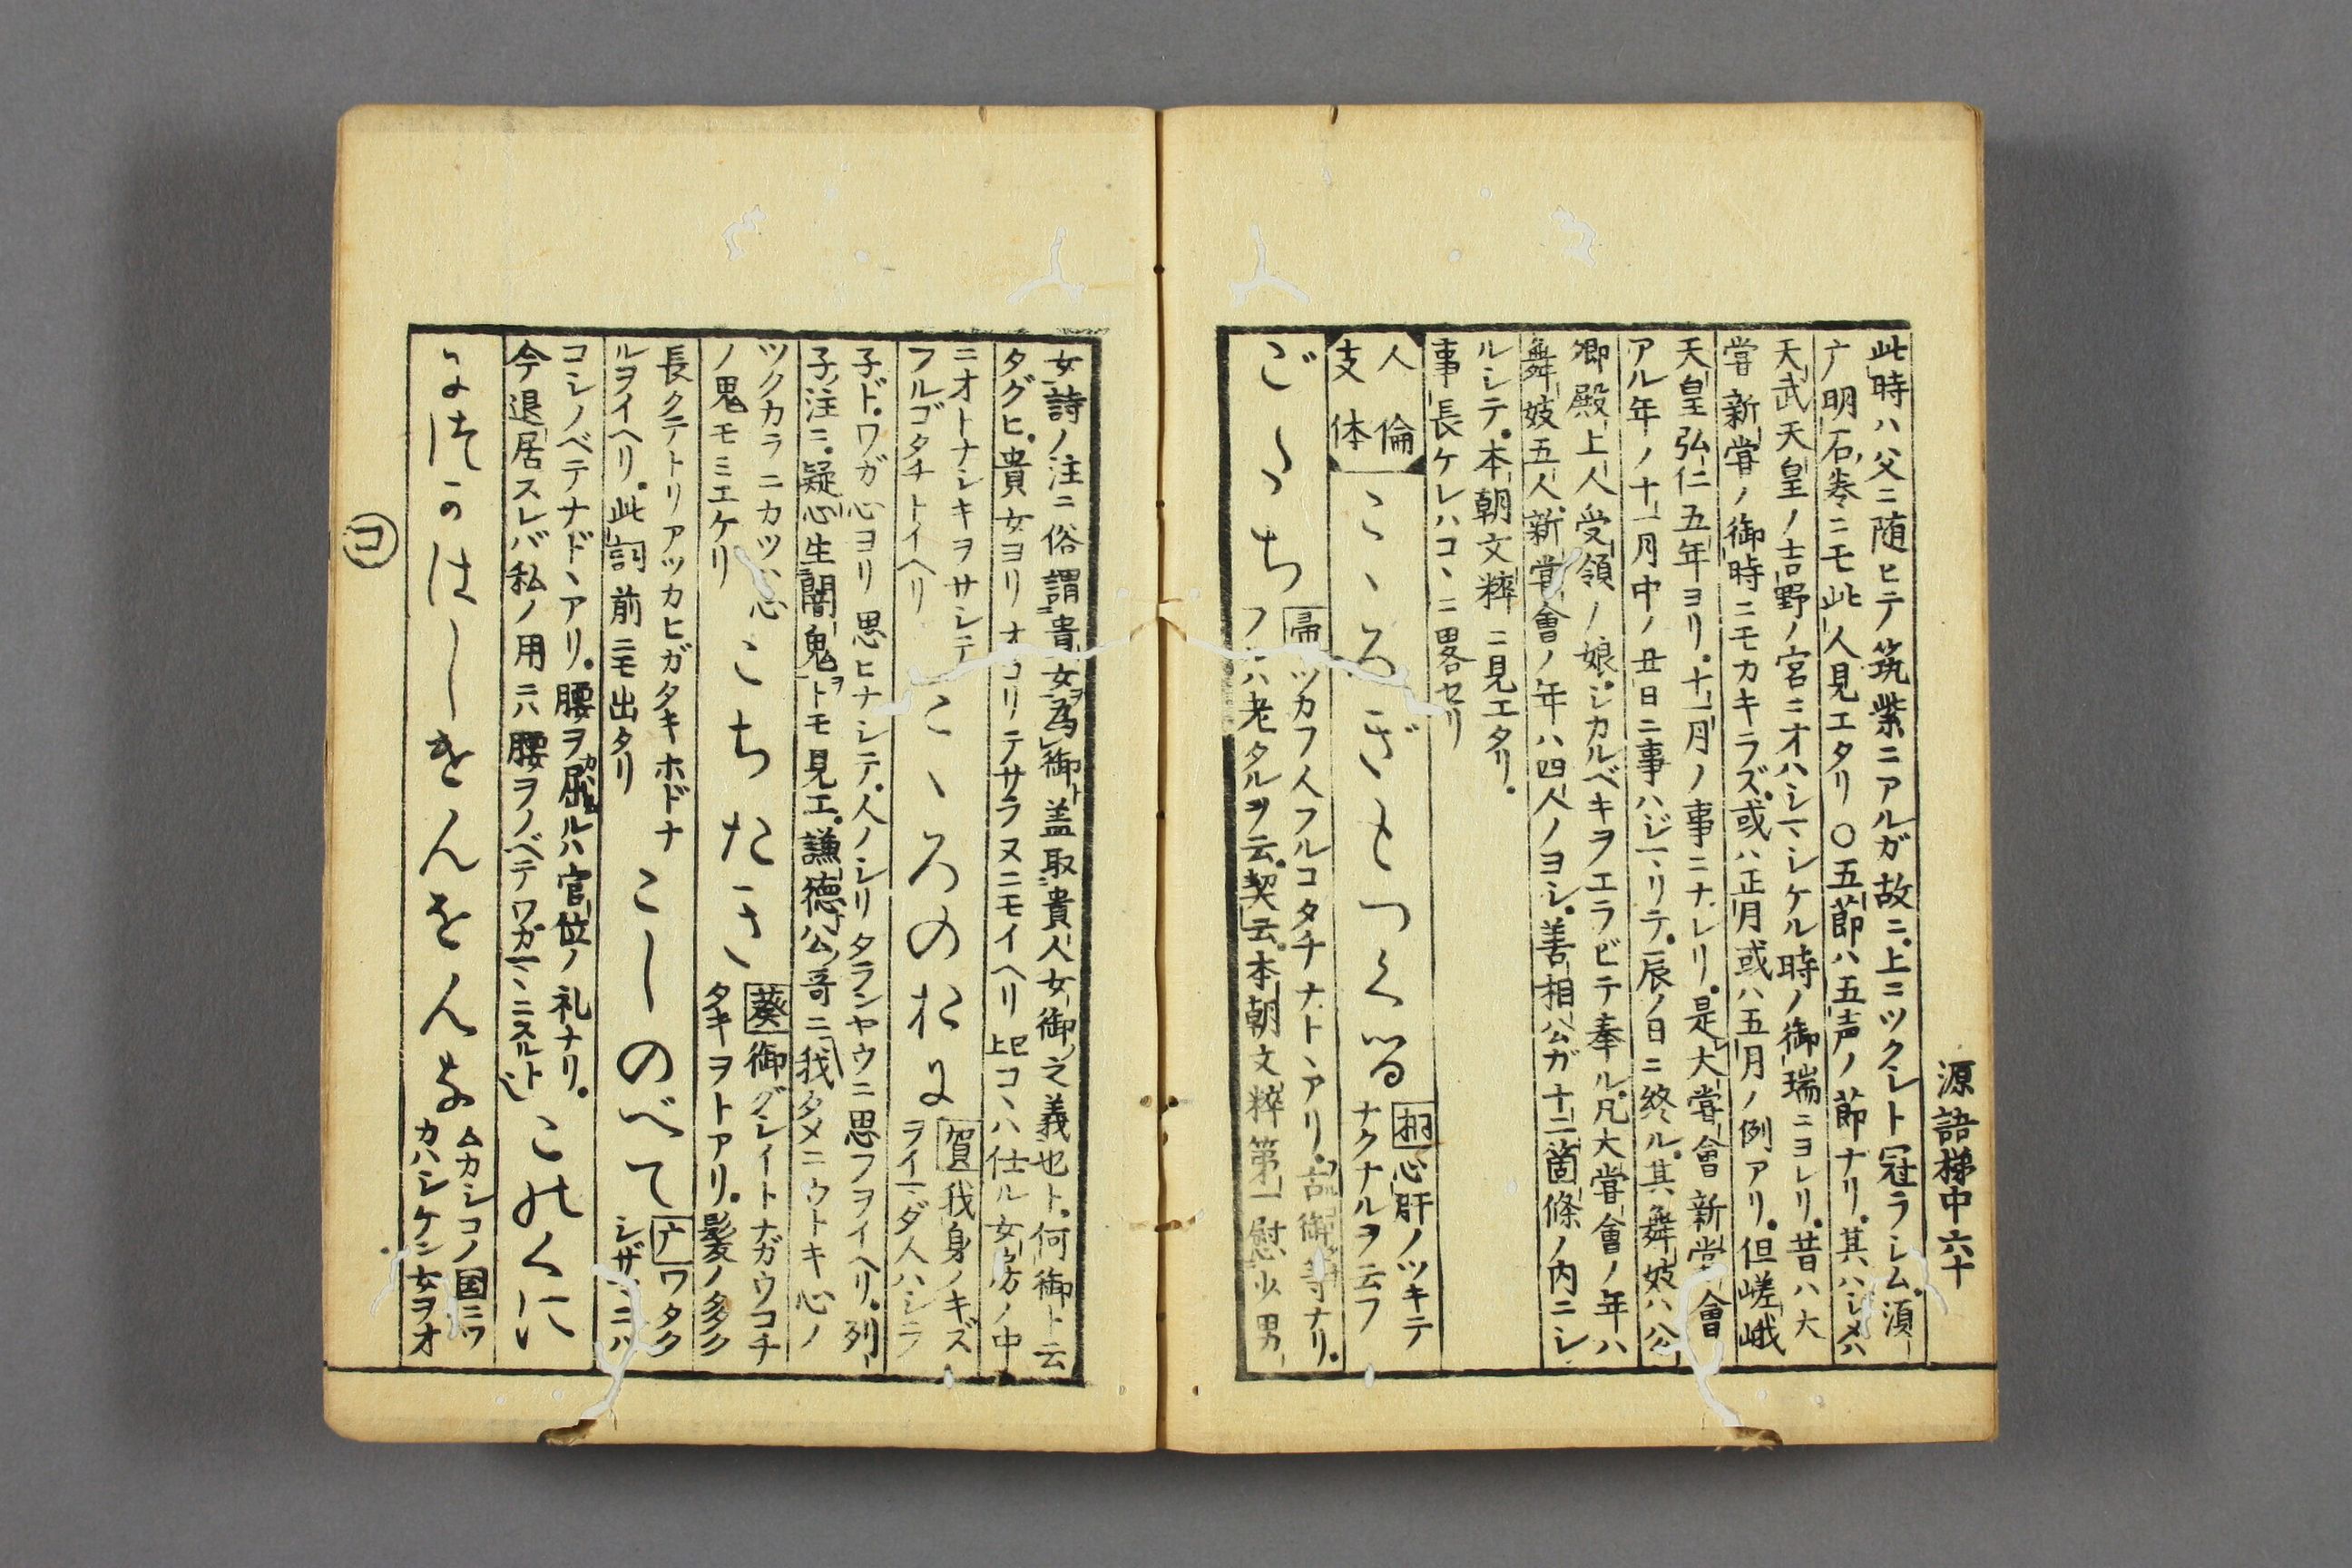 源語梯中六十
此時ハ父ニ随ヒテ筑紫ニアルガ故ニ上ニツクシト冠ラシム。須
广明石巻ニモ此人見エタリ〇五節ハ五声ノ節ナリ。其ハシメハ
天武天皇ノ吉野ノ宮ニオハシマシケル時ノ御瑞ニヨレリ。昔ハ大
嘗新嘗ノ御時ニモカキラズ。或ハ正月或ハ五月ノ例アリ。但嵯峨
天皇弘仁五年ヨリ。十一月ノ事ニナレリ。是大嘗會新嘗會
アル年ノ十一月中ノ丑日ニ事ハジマリテ。辰ノ日ニ終ル。其舞妓ハ公
卿殿上人受領ノ娘。シカルベキヲエラビテ奉ル。凡大嘗會ノ年ハ
舞妓五人。新嘗會ノ年ハ四人ノヨシ。善相公ガ十二箇條ノ内ニシ
ルシテ。本朝文粹ニ見エタリ。
事長ケレハコヽニ畧セリ
人倫
支体
こゝろぎもつくる
桐心肝ノツキテ
ナクナルヲ云フ
ごたち
ツカフ人フルコタチナトヽアリ。御等ナリ。
フルハ老タルヲ云。契云。本朝文粹第一慰少男
女詩ノ注ニ俗謂貴女ヲ為御ト盖取貴人女御之義也ト。何御ト云
タグヒ。貴女ヨリオコリテサラヌニモイヘリ
コヽハ仕ル女房ノ中
ニオトナシキヲサシテ
フルゴタチトイヘリ
こゝろのおに
賀我身ノキズ
ヲイマダ人ハシラ
子ド。ワガ心ヨリ思ヒナシテ。人ノシリタランヤウニ思フヲイヘリ。列
子注ニ。疑心生闇鬼ヲトモ見エ。謙徳公哥ニ我タメニウトキ心ノ
ツクカラニカツハ心
ノ鬼モミエケリ
こちたき
葵御グシイトナガウコチ
タキヲトアリ。髪ノ多ク
長クテトリアツカヒガタキホドナ
ルヲイヘリ。此詞前ニモ出タリ
こしのべて
ワタク
シザマニハ
コシノベテナドヽアリ。腰ヲ屈ルハ官位ノ礼ナリ。
今退居スレバ私ノ用ニハ腰ヲノベテワガマヽニスルト
このくに
につかはしきをんな
ムカシコノ国ニツ
カハシケン女ヲオ
コ